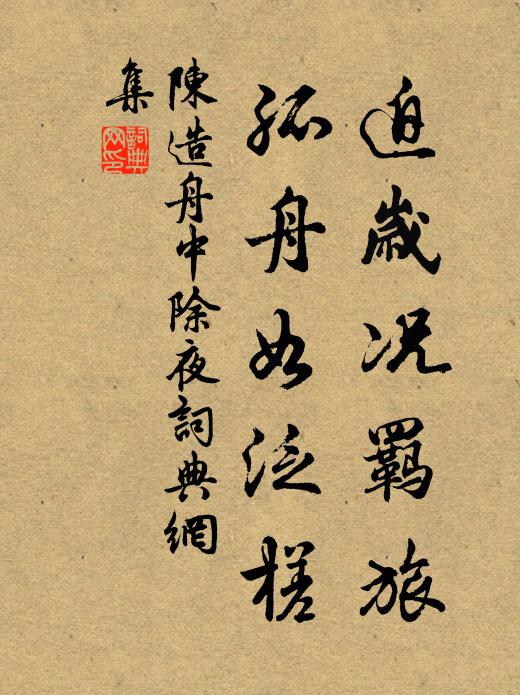 迫歲况羈旅
孤舟如泛槎
陳造舟中除夜詞典網
集
詞典
网印